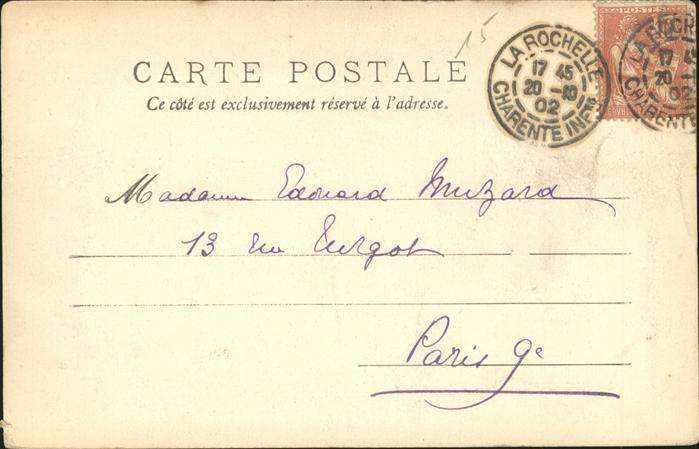 15
CARTE POSTALE
Ce côté est exclusivement réservé à l'adresse.
LA ROCHELLE
17 45
20
02
CHARENTE INFRE
POSTES
LA
17 45
20
02
CHARENTE
Madame Edouard Muzard
13 rue Turgot
Paris 9e